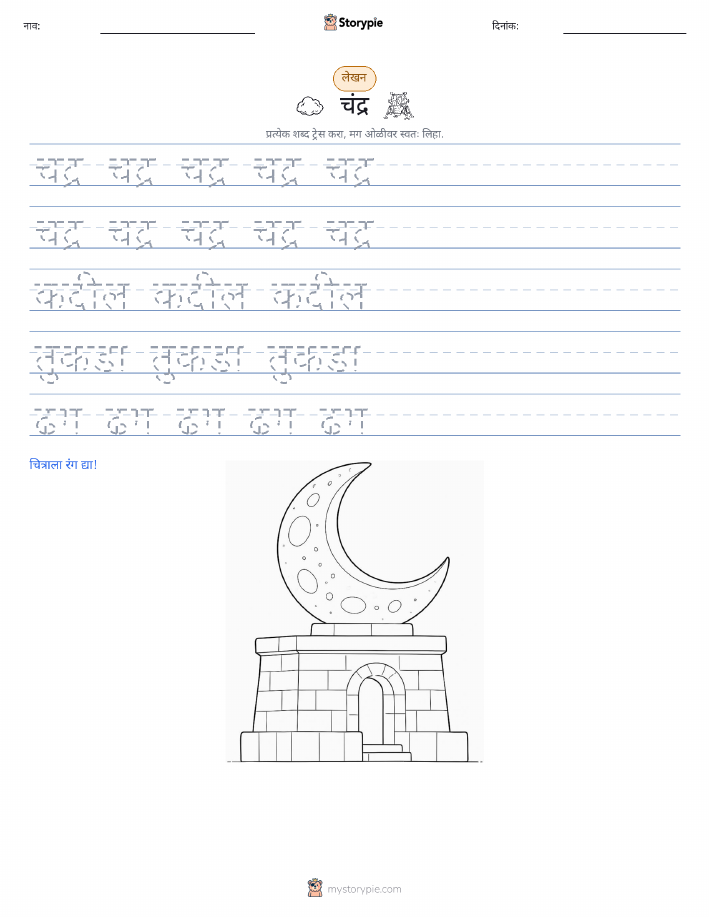 नाव: Storypie दिनांक:
लेखन
चंद्र
प्रत्येक शब्द ट्रेस करा, मग ओळीवर स्वतः लिहा.
चंद्र चंद्र चंद्र चंद्र चंद्र
चंद्र चंद्र चंद्र चंद्र चंद्र
कंदील कंदील कंदील
तुकडा तुकडा तुकडा
ढग ढग ढग ढग ढग
चित्राला रंग द्या!
mystorypie.com